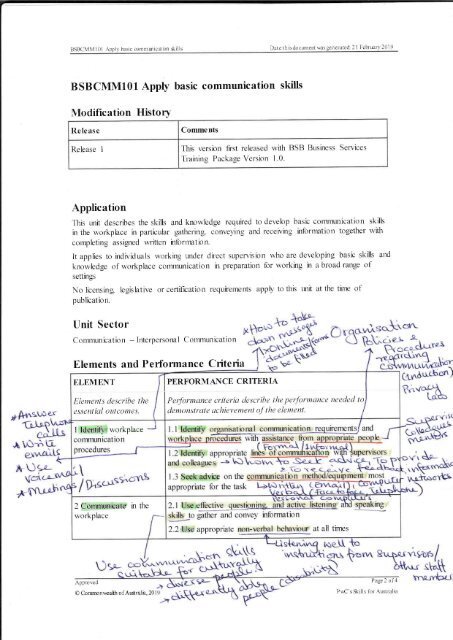 BSBCMM101 Apply basic communication skills Date this document was generated: 21 February 2019
BSBCMM101 Apply basic communication skills
Modification History
Release Comments
Release 1 This version first released with BSB Business Services
Training Package Version 1.0.
Application
This unit describes the skills and knowledge required to develop basic communication skills
in the workplace in particular gathering, conveying and receiving information together with
completing assigned written information.
It applies to individuals working under direct supervision who are developing basic skills and
knowledge of workplace communication in preparation for working in a broad range of
settings
No licensing, legislative or certification requirements apply to this unit at the time of
publication.
Unit Sector
Communication – Interpersonal Communication
* How to take
down messages
* Online
document forms
to be filled
Organisation
Policies &
Procedures
regarding
communication
(Induction)
Privacy
Laws
Elements and Performance Criteria
ELEMENT PERFORMANCE CRITERIA
Elements describe the
essential outcomes.
Performance criteria describe the performance needed to
demonstrate achievement of the element.
* Answer
telephone
calls
* Write
emails
* Use
voicemail
* Meetings/Discussions
1 Identify workplace
communication
procedures
1.1 Identify organisational communication requirements and
workplace procedures with assistance from appropriate people
(Formal/Informal)
1.2 Identify appropriate lines of communication with supervisors
and colleagues → Whom to seek advice, To provide
& to receive feedback, information
1.3 Seek advice on the communication method/equipment most
appropriate for the task → Written (Email), computer networks
Verbal (face to face, telephone)
personal computers
Colleagues
mentors
2 Communicate in the
workplace
2.1 Use effective questioning, and active listening and speaking
skills to gather and convey information
2.2 Use appropriate non-verbal behaviour at all times
Listening well to
instructions from supervisors/
other staff
member
Use communication skills
suitable for culturally
→ diverse people
→ differently able people (disability)
Approved Page 2 of 4
© Commonwealth of Australia, 2019 PwC's Skills for Australia